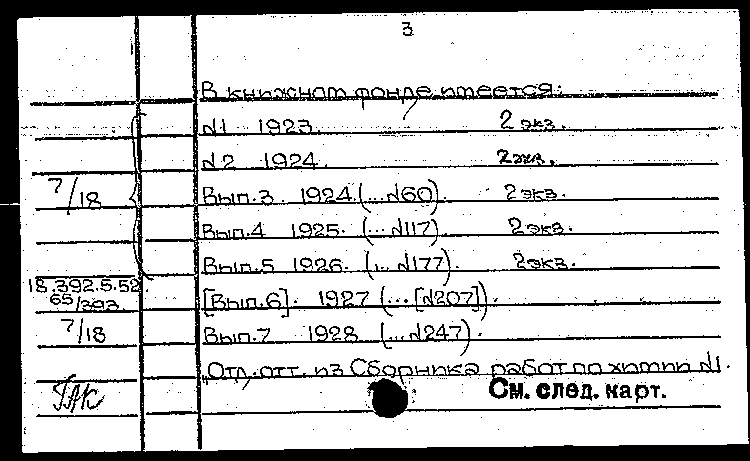 3
В книжном фонде имеется:
№1 1923. 2 экз.
№2 1924. 2 экз.
7/18 Вып.3 1924. (...№60) 2 экз.
Вып.4 1925. (...№117) 2 экз.
Вып.5 1926. (...№177) 2 экз.
18.392.5.52
65/393 [Вып.6]. 1927 (...[№207]).
7/18 Вып.7 1928 (...№247).
"Отд. отт. из Сборника работ по химии №1.
См. след. карт.